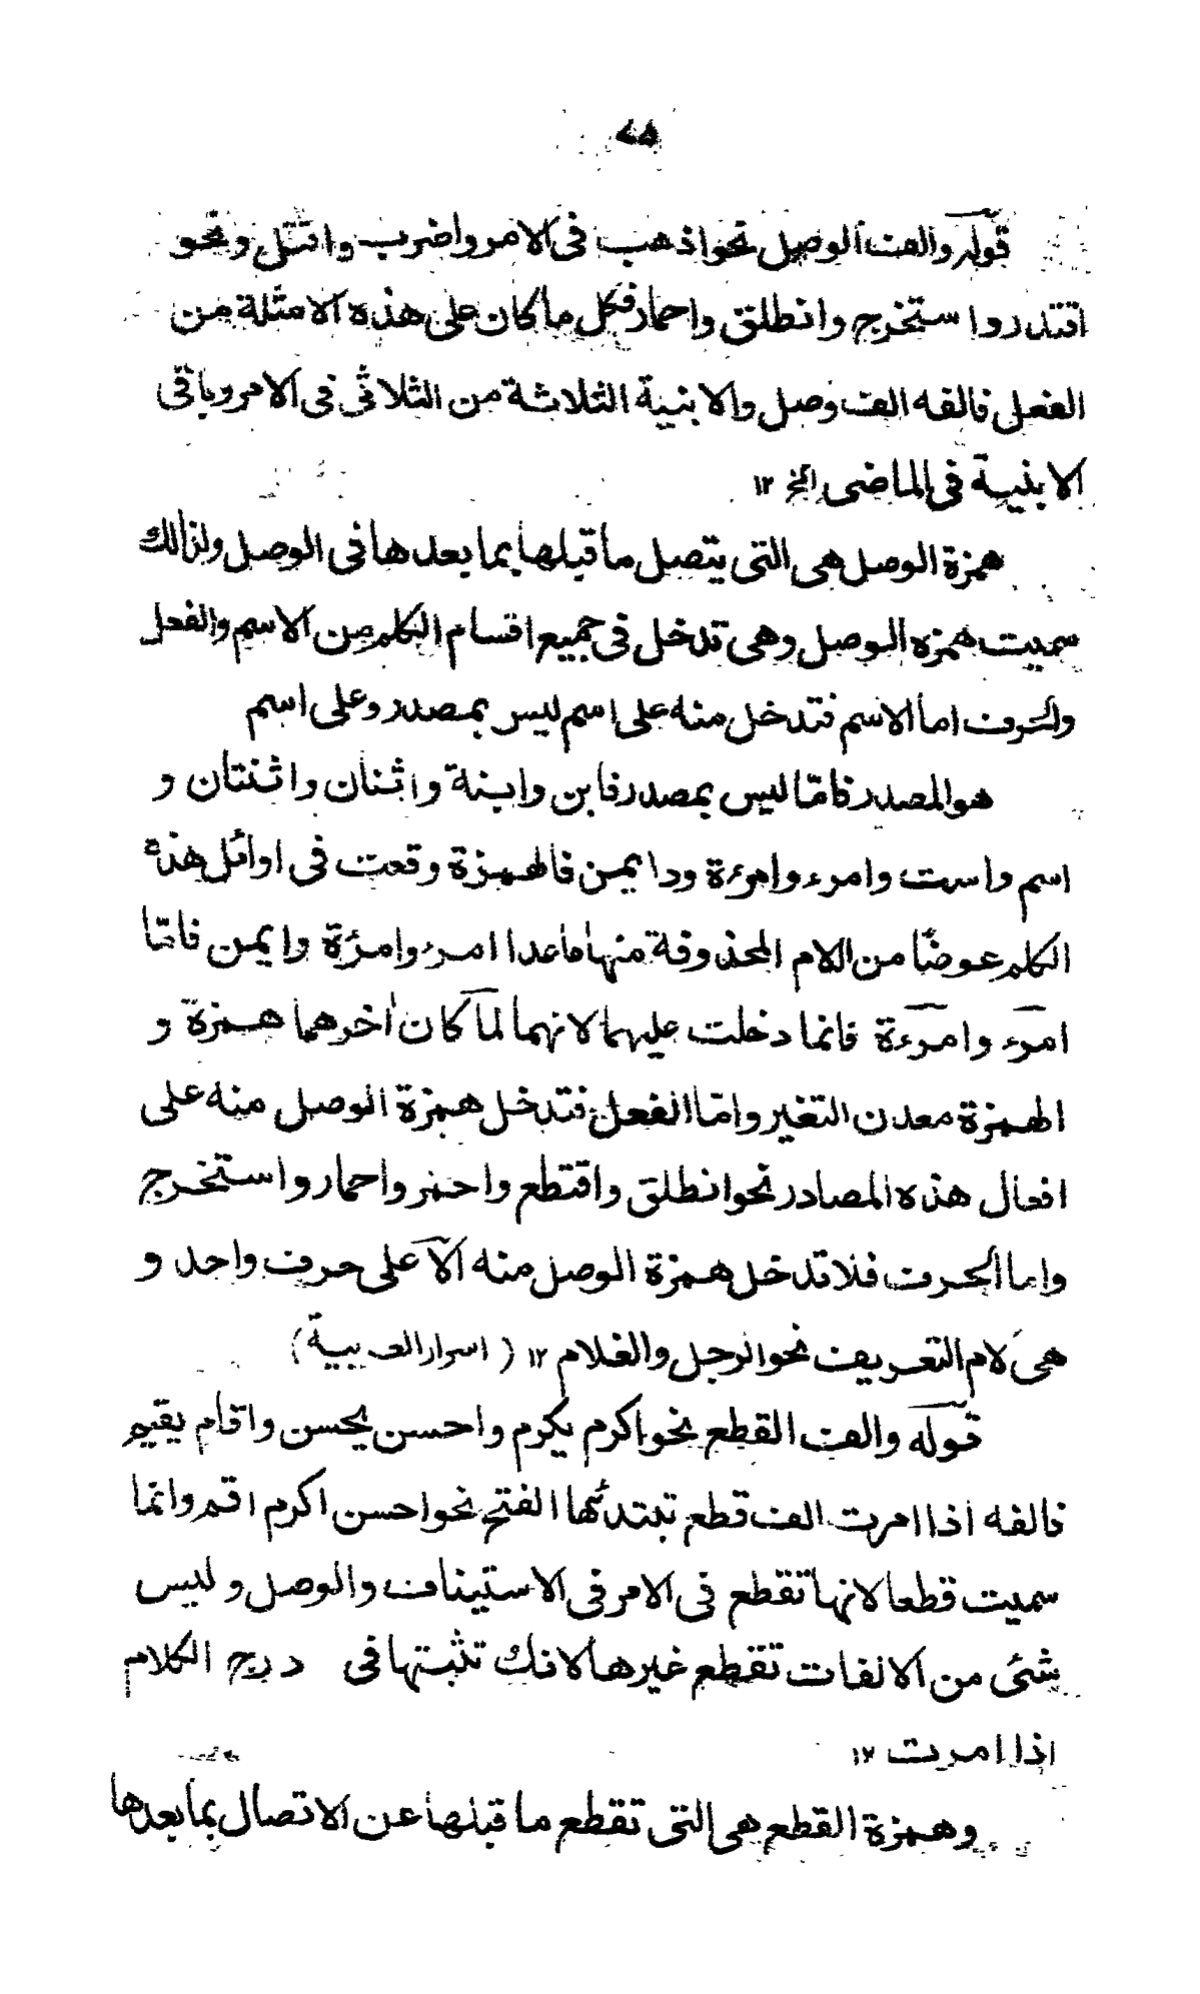 قوله والف الوصل نحو اذهب فى الامر واضرب واقتل ونحو
اقتدر واستخرج وانطلق واحمار فكل ما كان على هذه الامثلة من
الفعل فالفه الف وصل والابنية الثلاثة من الثلاثى فى الامر وباقى
الابنية فى الماضى الخ ۱۲
همزة الوصل هى التى يتصل ما قبلها بما بعدها فى الوصل ولذالك
سميت همزه الوصل وهى تدخل فى جميع اقسام الكلم من الاسم والفعل
والحرف اما الاسم فتدخل منه على اسم ليس بمصدر وعلى اسم
هو المصدر فامّا ليس بمصدر فابن وابنة واثنان واثنتان و
اسم واست وامرء وامرءة ودايمن فالهمزة وقعت فى اوائل هذه
الكلم عوضًا من اللام المحذوفة منها ما عدا امرء وامرءة وايمن فامّا
امرء وامرءة فانما دخلت عليهما لانهما لمّا كان اٰخرهما همزة و
الهمزة معدن التغير وامّا الفعل فتدخل همزة الوصل منه على
افعال هذه المصادر نحو انطلق واقتطع واحمر واحمار واستخرج
واما الحرف فلا تدخل همزة الوصل منه الّا على حرف واحد و
هى لام التعريف نحو الرجل والغلام ۱۲ (اسرار العربية)
قوله والف القطع نحو اكرم يكرم واحسن يحسن واقام يقيم
فالفه اذا امرت الف قطع تبتدئها الفتح نحو احسن اكرم اقم وانما
سميت قطعا لانها تقطع فى الامر فى الاستيناف والوصل وليس
شئى من الالفات تقطع غيرها لانك تثبتها فى درج الكلام
اذا امرت ۱۲
وهمزة القطع هى التى تقطع ما قبلها عن الاتصال بما بعدها